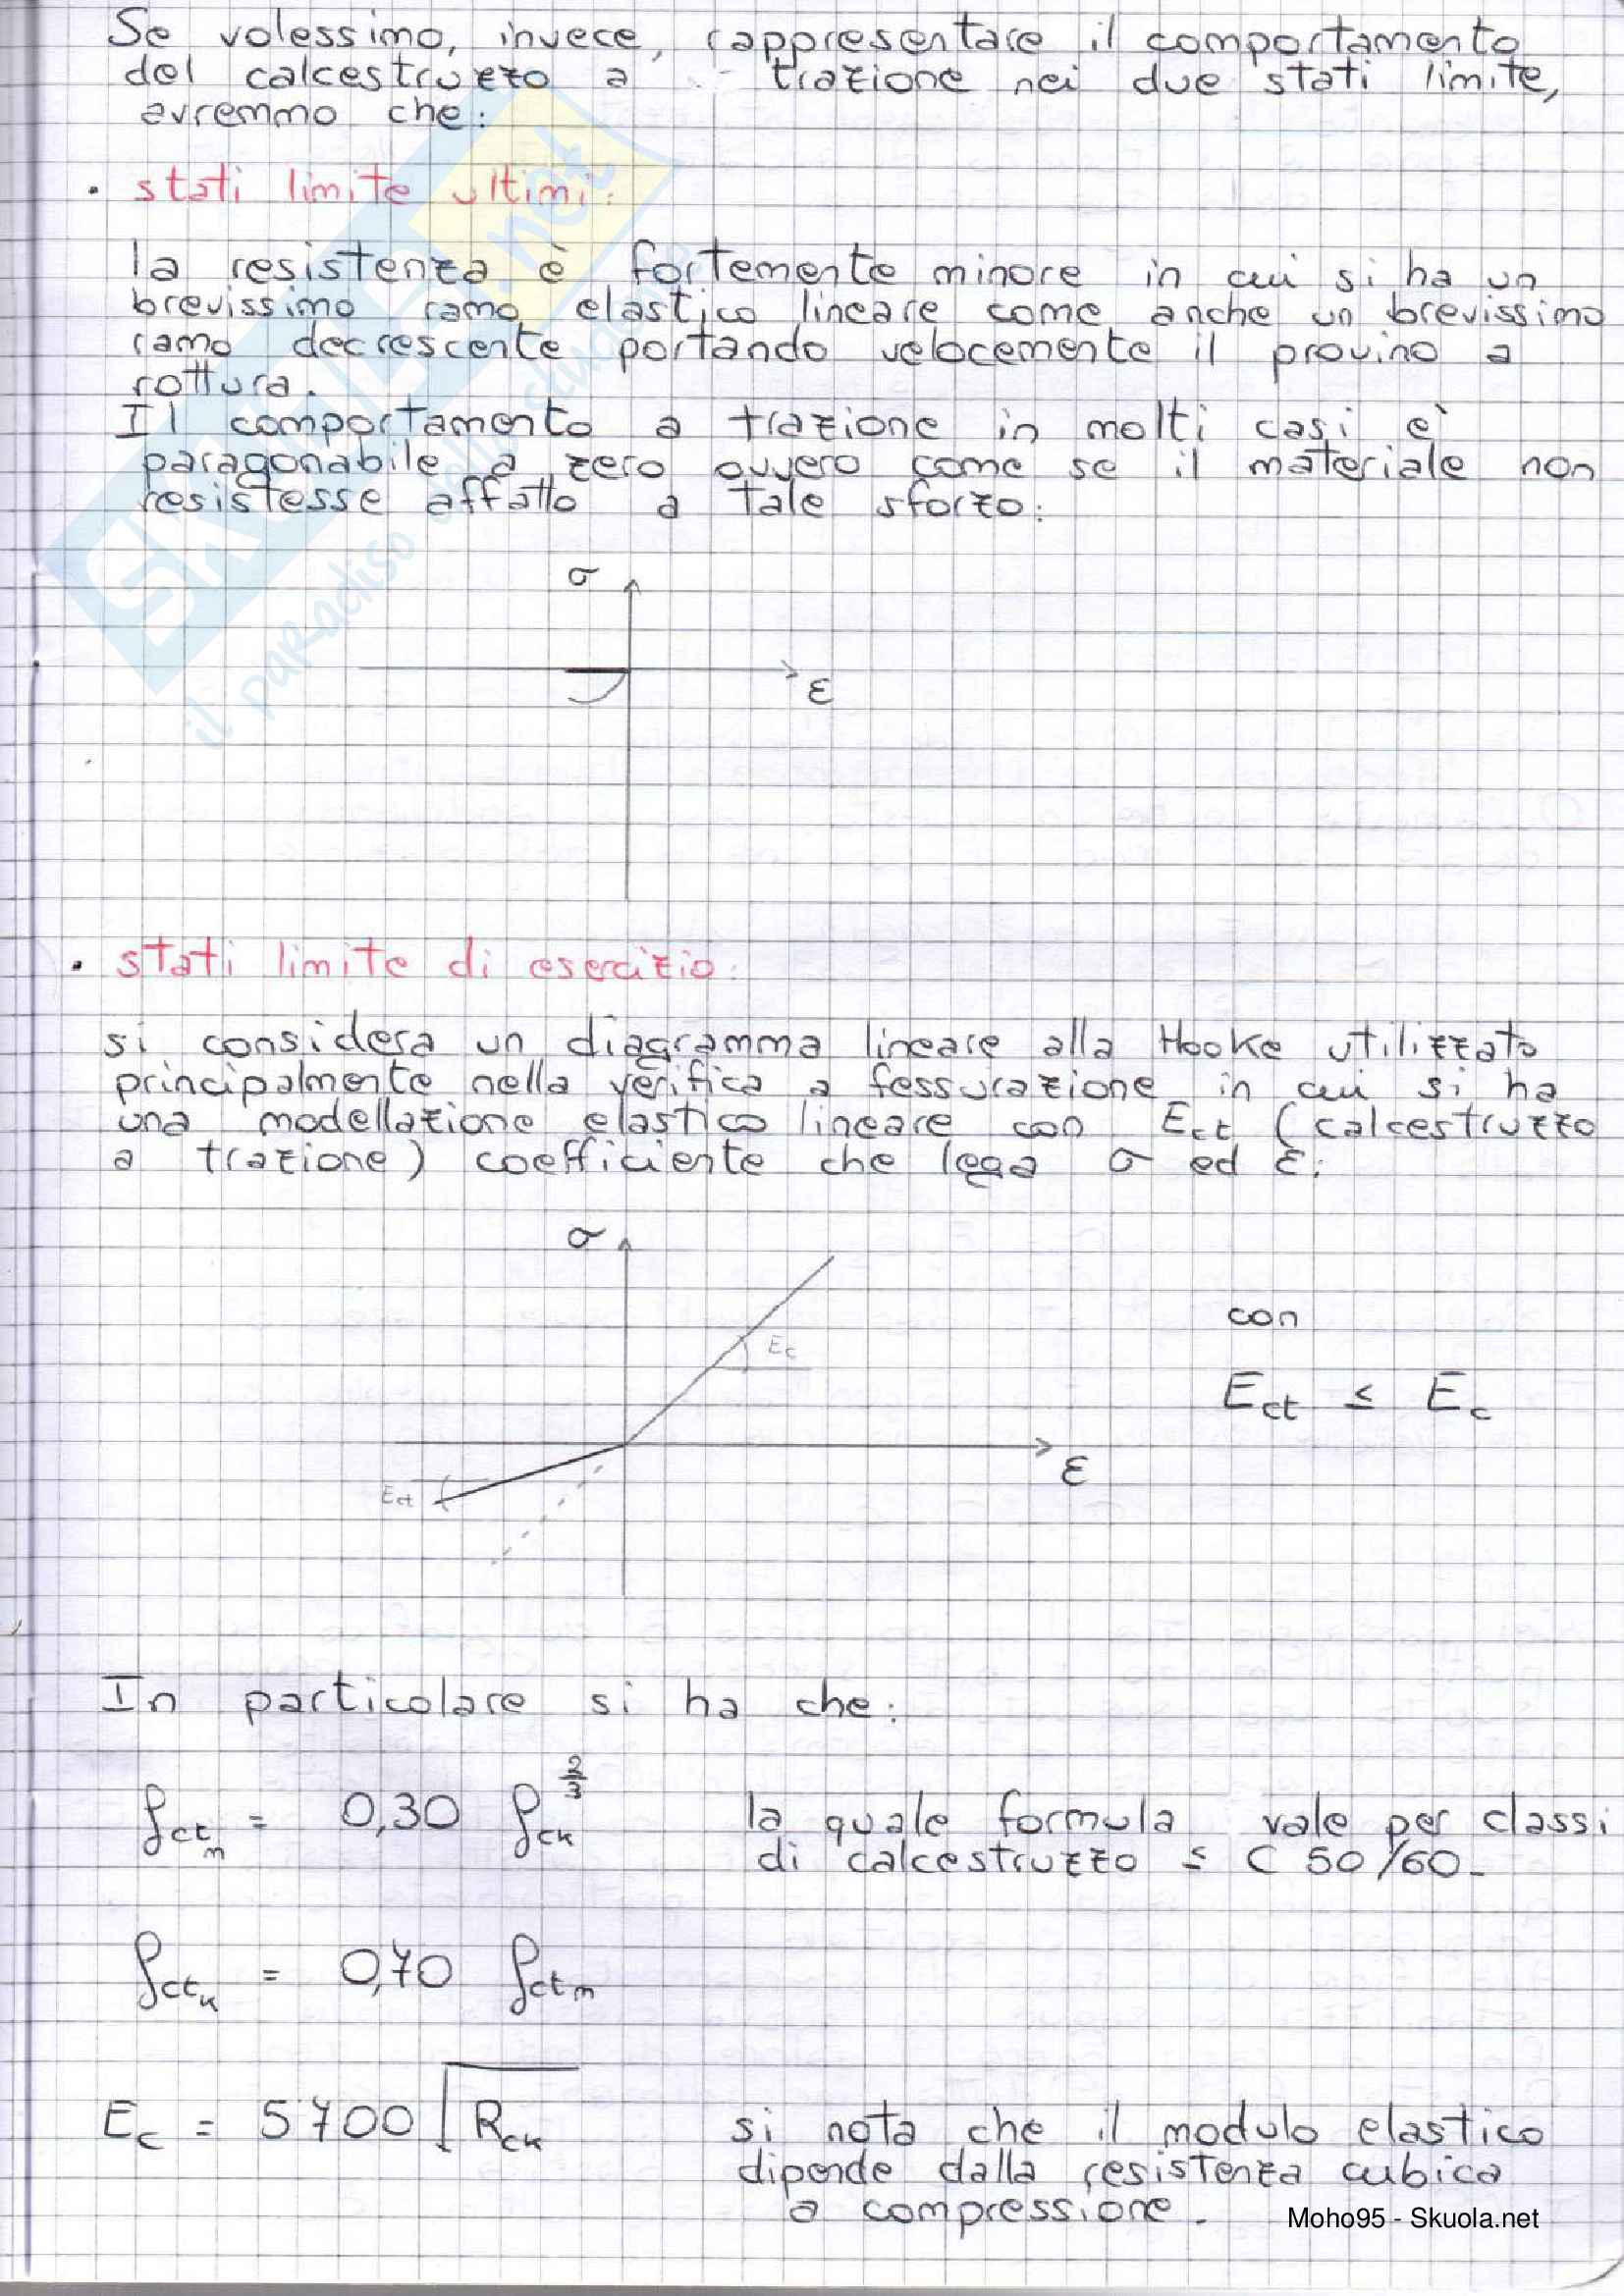 Se volessimo, invece, rappresentare il comportamento
del calcestruzzo a trazione nei due stati limite,
avremmo che:
• stati limite ultimi:
la resistenza è fortemente minore in cui si ha un
brevissimo ramo elastico lineare come anche un brevissimo
ramo decrescente portando velocemente il provino a
rottura.
Il comportamento a trazione in molti casi è
paragonabile a zero ovvero come se il materiale non
resistesse affatto a tale sforzo:
σ
ε
• stati limite di esercizio:
si considera un diagramma lineare alla Hooke utilizzato
principalmente nella verifica a fessurazione in cui si ha
una modellazione elastico lineare con Ect (calcestruzzo
a trazione) coefficiente che lega σ ed ε:
σ
Ec
con
Ect ≤ Ec
ε
Ect
In particolare si ha che:
fctm = 0,30 fck^2/3 la quale formula vale per classi
di calcestruzzo ≤ C 50/60-
fctk = 0,70 fctm
Ec = 5700 √Rck si nota che il modulo elastico
dipende dalla resistenza cubica
a compressione.
Moho95 - Skuola.net
SKUOLA.net
il paradiso dello studente